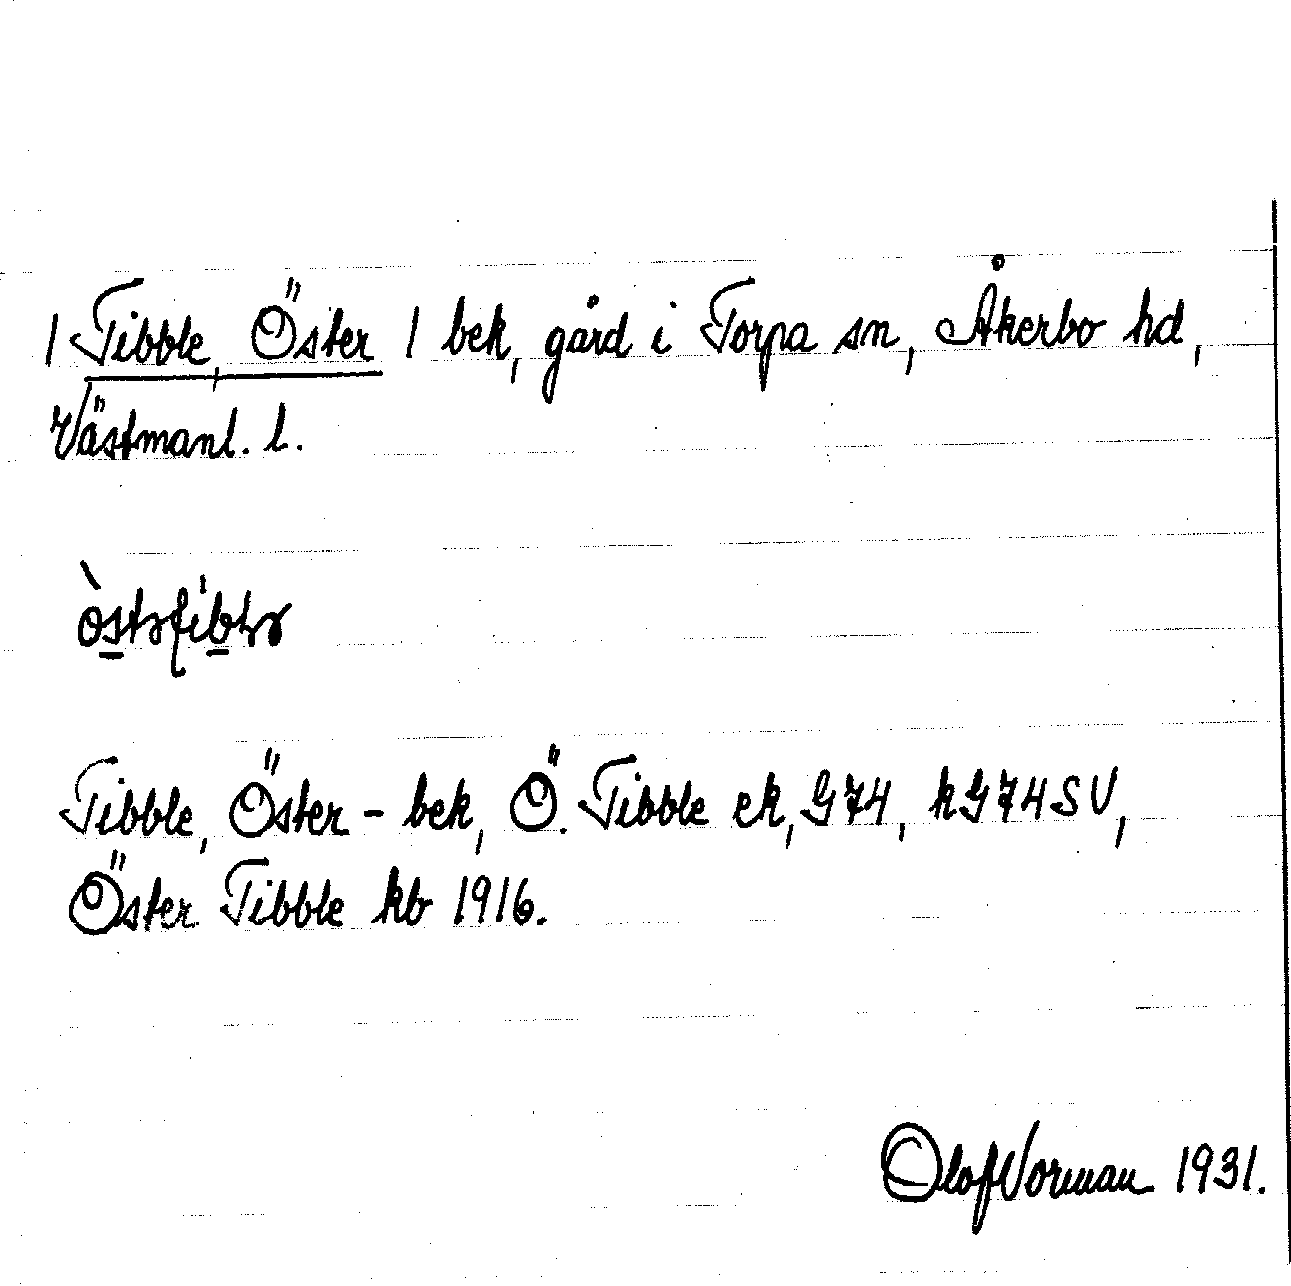 / Tibble, Öster / bek, gård i Torpa sn, Åkerbo hd,
Västmanl. l.
Tibble, Öster - bek, Ö. Tibble ek, G74, kG74SV,
Öster Tibble kb 1916.
Olof Norman 1931.